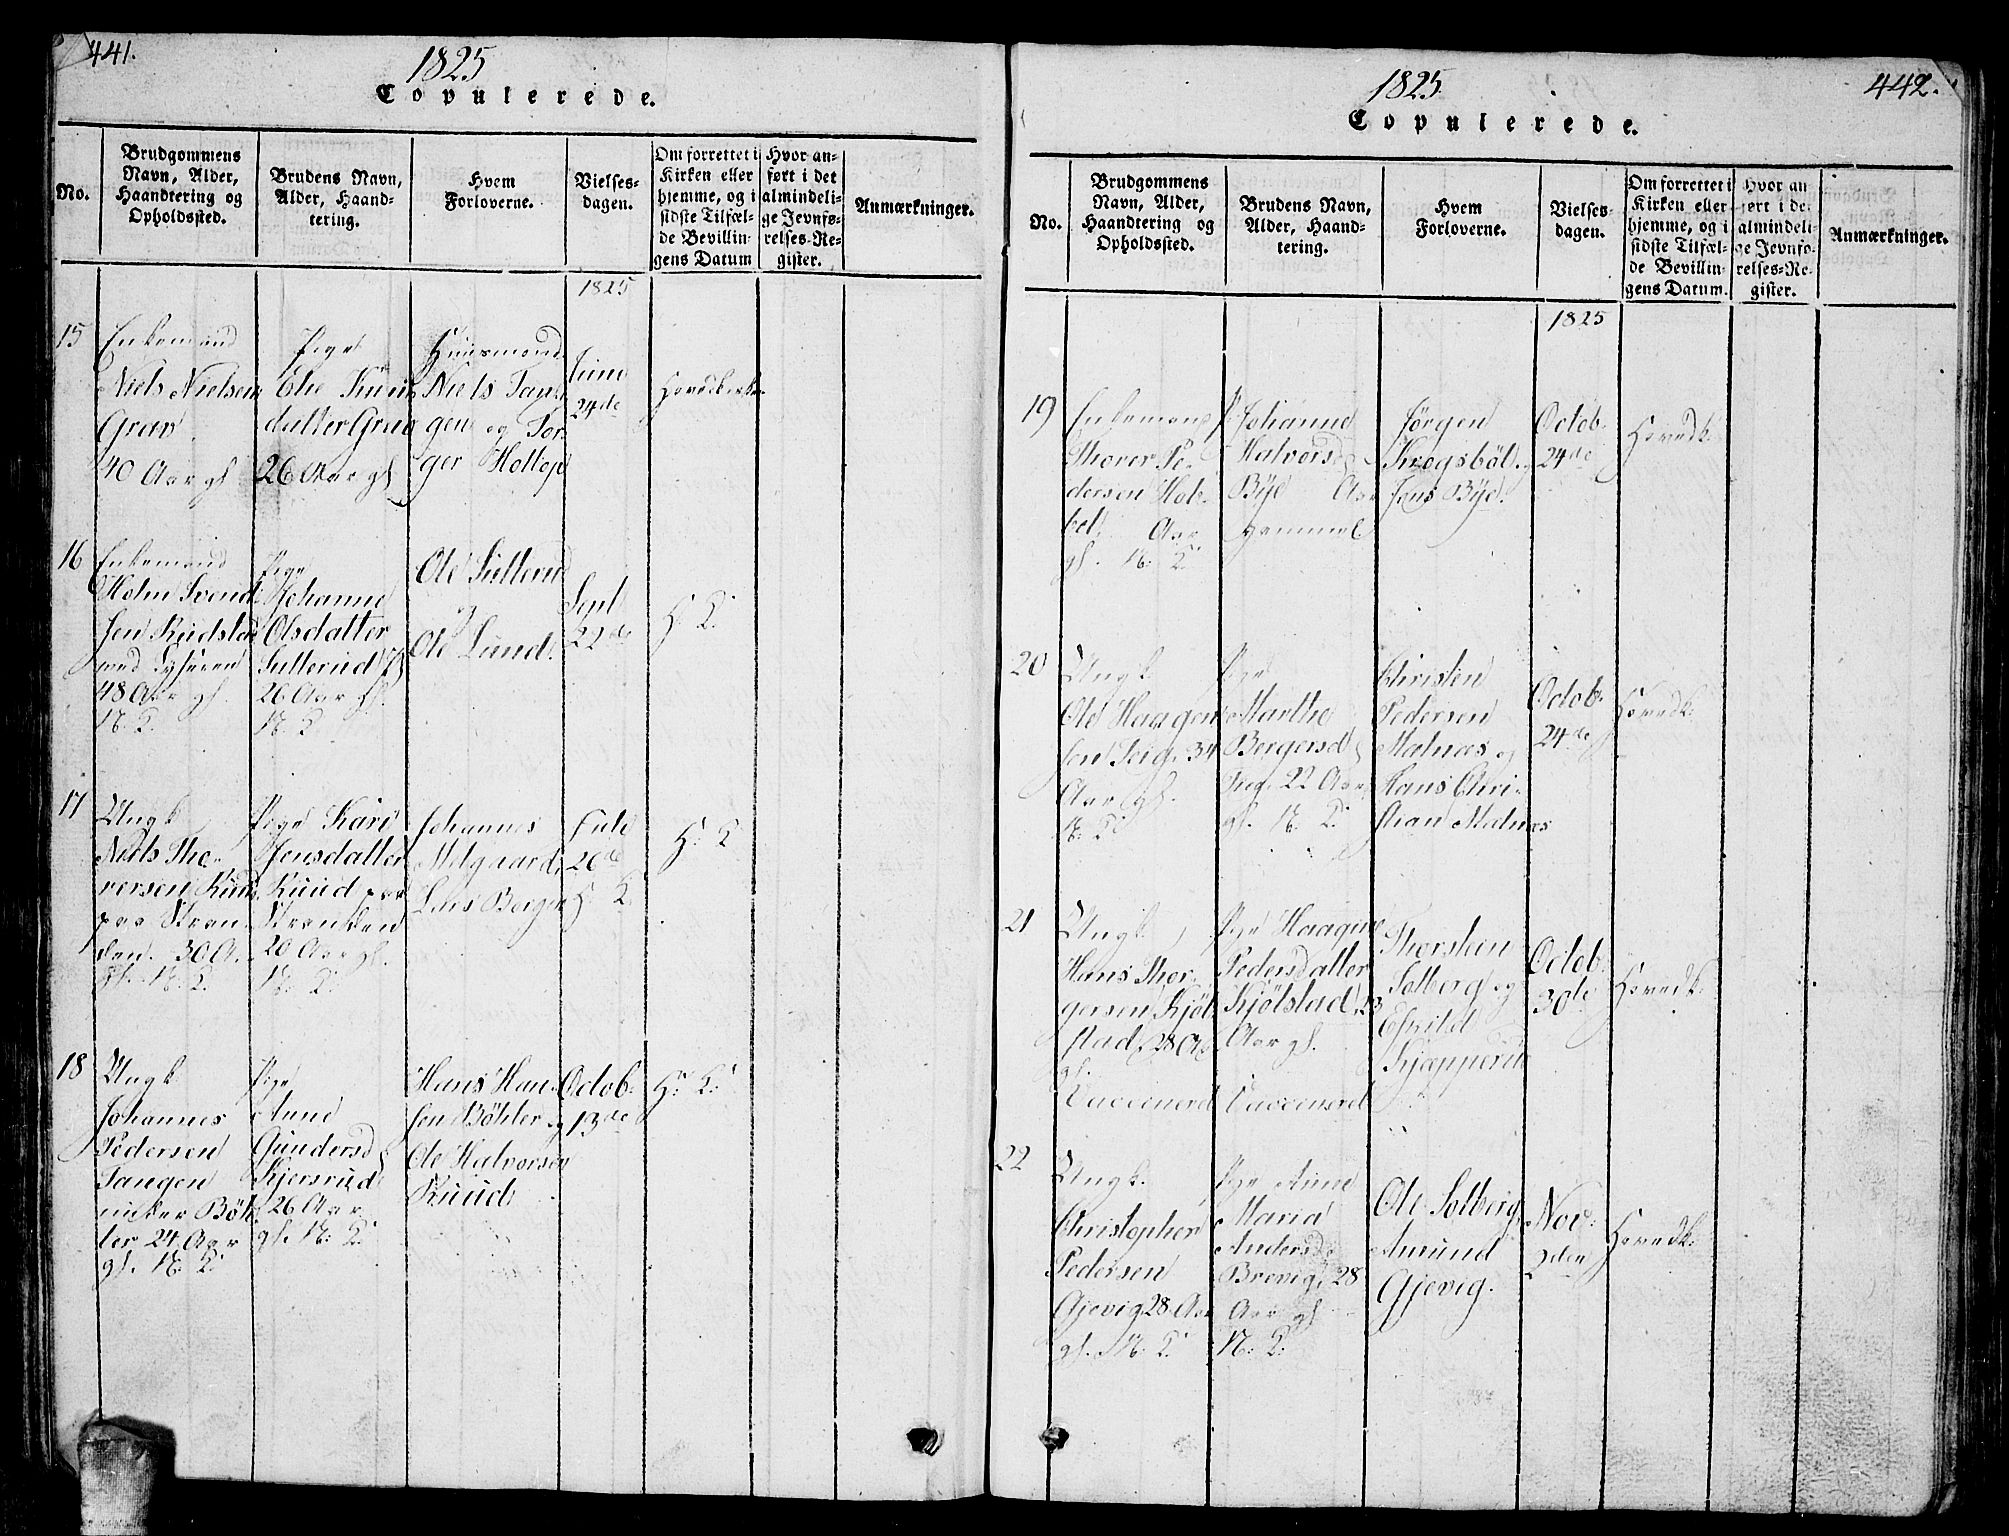 441.
1825
Copulerede.
No.
Brudgommens
Navn, Alder,
Haandtering og
Opholdssted.
Brudens Navn,
Alder, Haand-
tering.
Hvem
Forloverne.
Vielses-
dagen.
Om forrettet i
Kirken eller
hjemme, og i
sidste Tilfæl-
de Bevillin-
gens Datum
Hvor an-
ført i det
almindeli-
ge Jevnfø-
relses-Re-
gister.
Anmærkninger.
1825
15
Enkemand
Niels Nielsen
Grav
40 Aar gl
Pige
Elie Knuds
datter Grav
26 Aar gl
Huusmand
Niels Tan-
gen og Tor-
ger Holtop
Juni
24de
Hovedkirke
16
Enkemand
Holm Svend
sen Rudstad
48 Aar gl.
N: T.
Pige
Johanne
Olsdatter
Sutterud
26 Aar gl.
N: T
Ole Sutterud
og
Ole Lund.
Sept
22de
H: K:
17
Ungk
Niels Tho-
versen Ruud
paa Stran-
den. 30 A.
gl. N. T.
Pige Kari
Jensdatter
Ruud paa
Stranden
20 Aar gl.
N: T:
Johannes
Melgaard,
Lars Bergen
Juli
20de
H: K:
H: K
18
Ungk
Johannes
Pedersen
Tangen
under Böh-
ler 24 Aar
gl. N. T.
Pige
Anne
Gundersd
Kjersrud
26 Aar
gl. N: T:
Hans Han-
sen Böhler og
Ole Halvorsen
Ruud
Octob:
13de
H: K:
442.
1825
Copulerede.
No.
Brudgommens
Navn, Alder,
Haandtering og
Opholdssted.
Brudens Navn,
Alder, Haand-
tering.
Hvem
Forloverne.
Vielses-
dagen.
Om forrettet i
Kirken eller
hjemme, og i
sidste Tilfæl-
de Bevillin-
gens Datum.
Hvor an
ført i de
almindeli
ge Jevnfø-
relses-Re-
gister.
Anmærkninger.
1825
19
Enkemand
Thorer Pe-
dersen Hob-
bel, Aar
gl. N. T
P. Johanne
Halvorsd
Bÿe Aar
gammel
Jørgen
Krogsböl,
Jens Bÿe.
Octob:
24de
Hovedk:
20
Ungk
Ole Haagen
sen Teig, 34
Aar gl.
N: T:
Pige
Marthe
Bergersd
Teig, 22 Aar
gl. N. T.
Christen
Pedersen
Malnæs og
Hans Chri-
stian Malnæs
Octob:
24de
Hovedk:
21
Ungk
Hans Thor-
gersen Kjöl-
stad, 28 A
gl.
Vaccinerd
Pige Haagine
Pedersdatter
Kjölstad, 23
Aar gl.
Vaccinerd
Thorstein
Solberg og
Eskild
Kjæpperud
Octob:
30te
Hovedk:
22
Ungk.
Christopher
Pedersen
Gjevig 28 Aar
gl. N: T:
Pige Anne
Maria
Andersd:
Brevig, 28
Aar gl
N: T:
Ole Solberg,
Amund
Gjevig.
Nov:
2den
Hovedk: